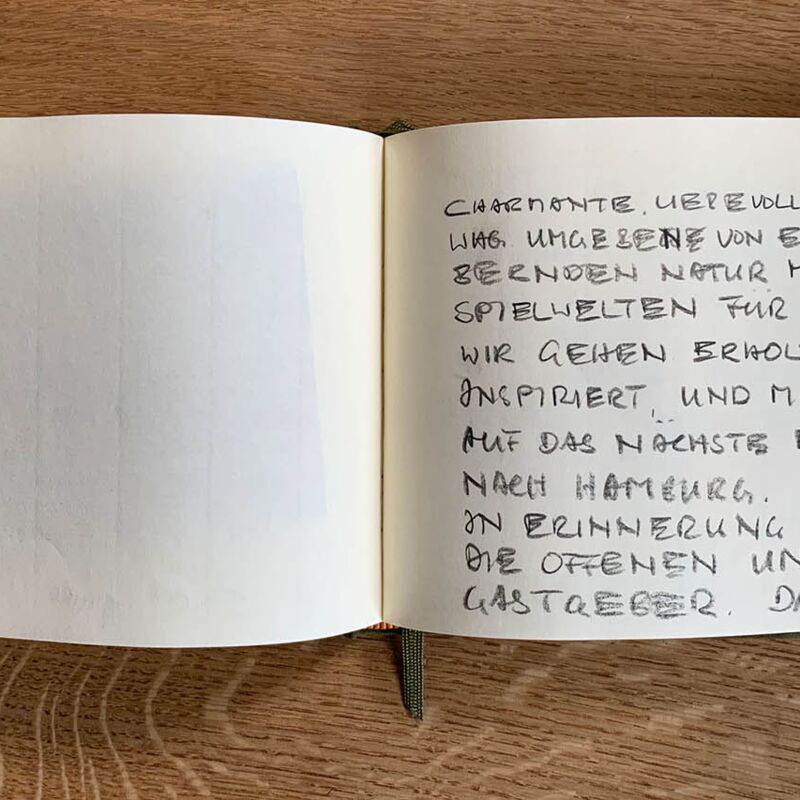 CHARMANTE, LIEBEVOLL
WHG. UMGEBENE VON E
BERNDEN NATUR M
SPIELWELTEN FÜR
WIR GEHEN ERHOL
INSPIRIERT, UND M
AUF DAS NÄCHSTE
NACH HAMBURG.
IN ERINNERUNG
DIE OFFENEN UN
GASTGEBER. DA